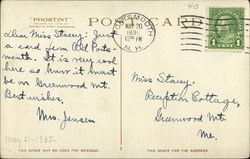 40
"PHOSTINT"
POST CARD
PORTSMOUTH
MAY 20
12 PM
1935
N.H.
1
Dear Miss Stacey: Just
a card from Old Ports-
mouth. It is very cool
here so know it must be
on Greenwood Mt.
Best wishes,
Mrs. Jensen
May 21-1935-
Miss Stacey.
Reception Cottage,
Greenwood Mt
Me.
THIS SPACE MAY BE USED FOR MESSAGE.
THIS SPACE FOR ADDRESS ONLY.